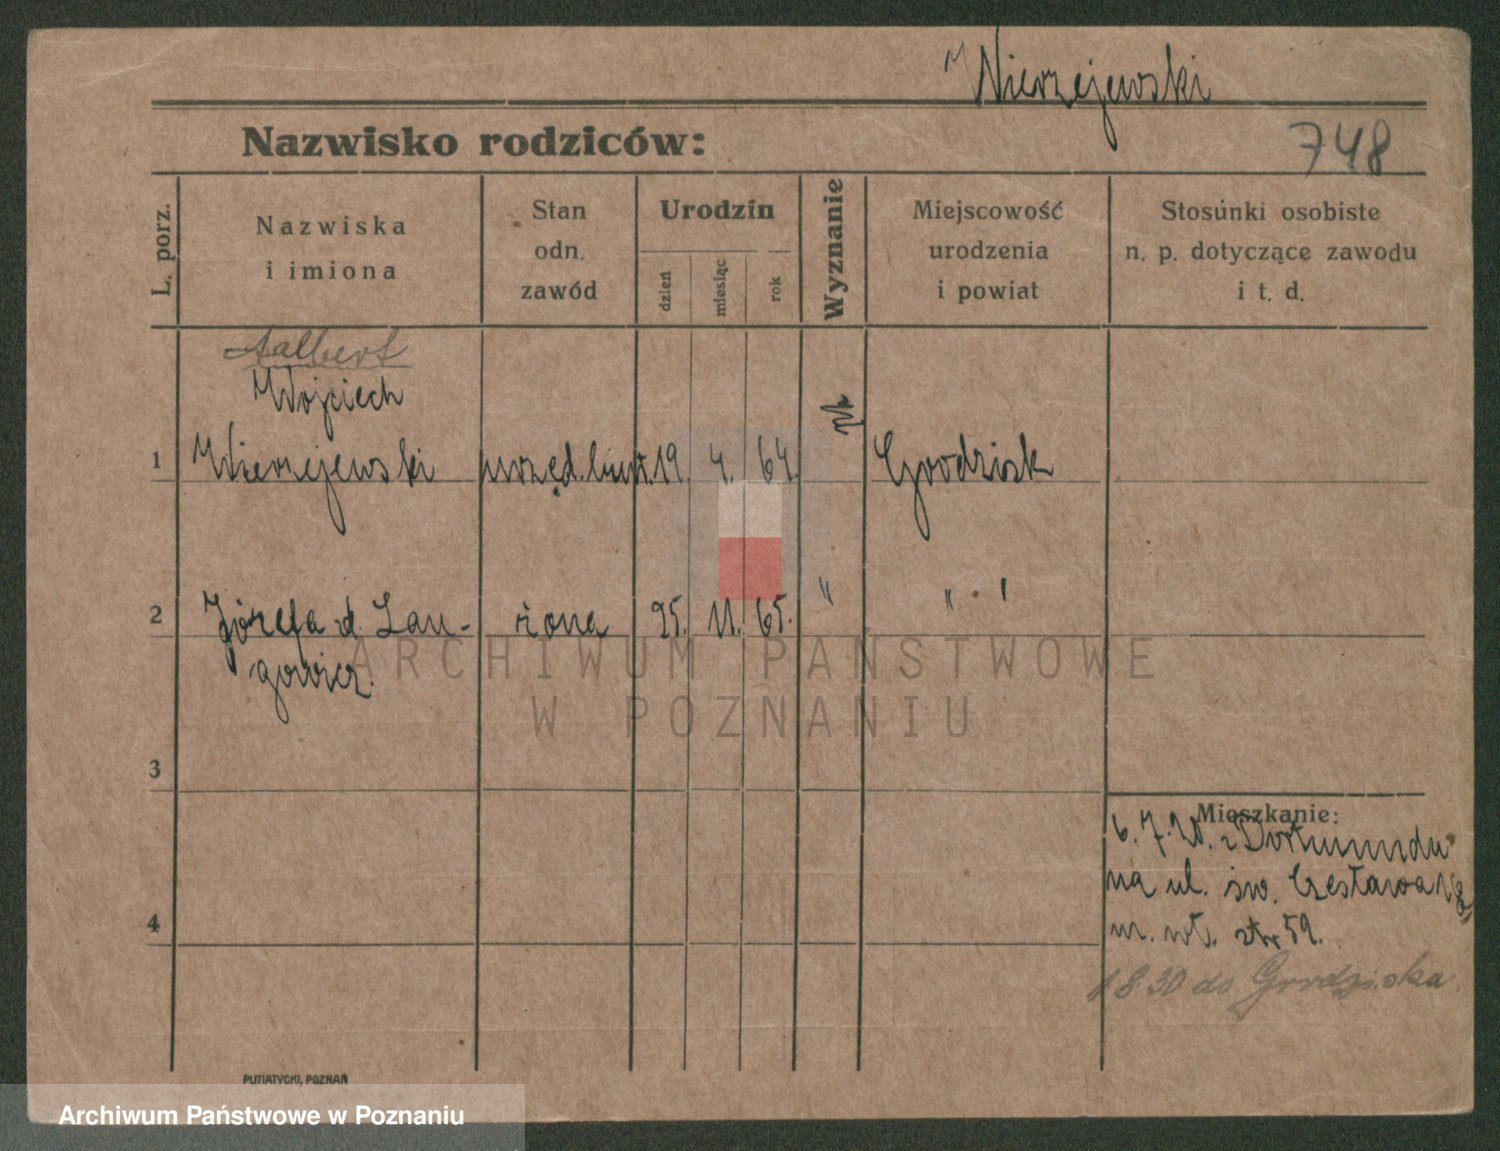 Wierzejewski
Nazwisko rodziców:
748
L. porz.
Nazwiska
i imiona
Stan
odn.
zawód
Urodzin
dzień
miesiąc
rok
Wyznanie
Miejscowość
urodzenia
i powiat
Stosunki osobiste
n. p. dotyczące zawodu
i t. d.
Aalbert
Wojciech
1 Wierzejewski urzęd. 19. 4. 64. Grodzisk
2 Józefa d. Lan- żona 25. 11. 65. " " "
gowicz
3
Mieszkanie:
6. 7. 20. z Dortmundu
na ul. św. Czesława 18,
4
m. wł. str 59.
1 8 30 do Grodziska.
ARCHIWUM PAŃSTWOWE
W POZNANIU
PUTIATYCKI, POZNAŃ
Archiwum Państwowe w Poznaniu